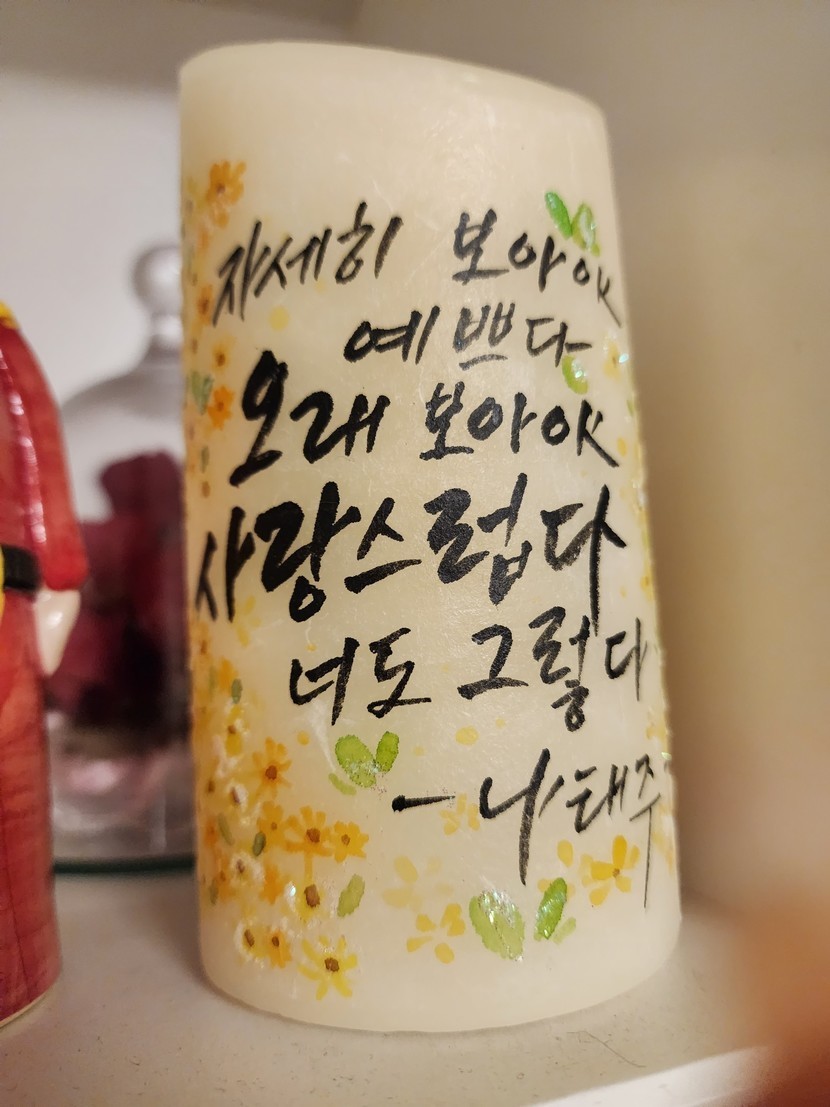 자세히 보아야
예쁘다
오래 보아야
사랑스럽다
너도 그렇다
- 나태주